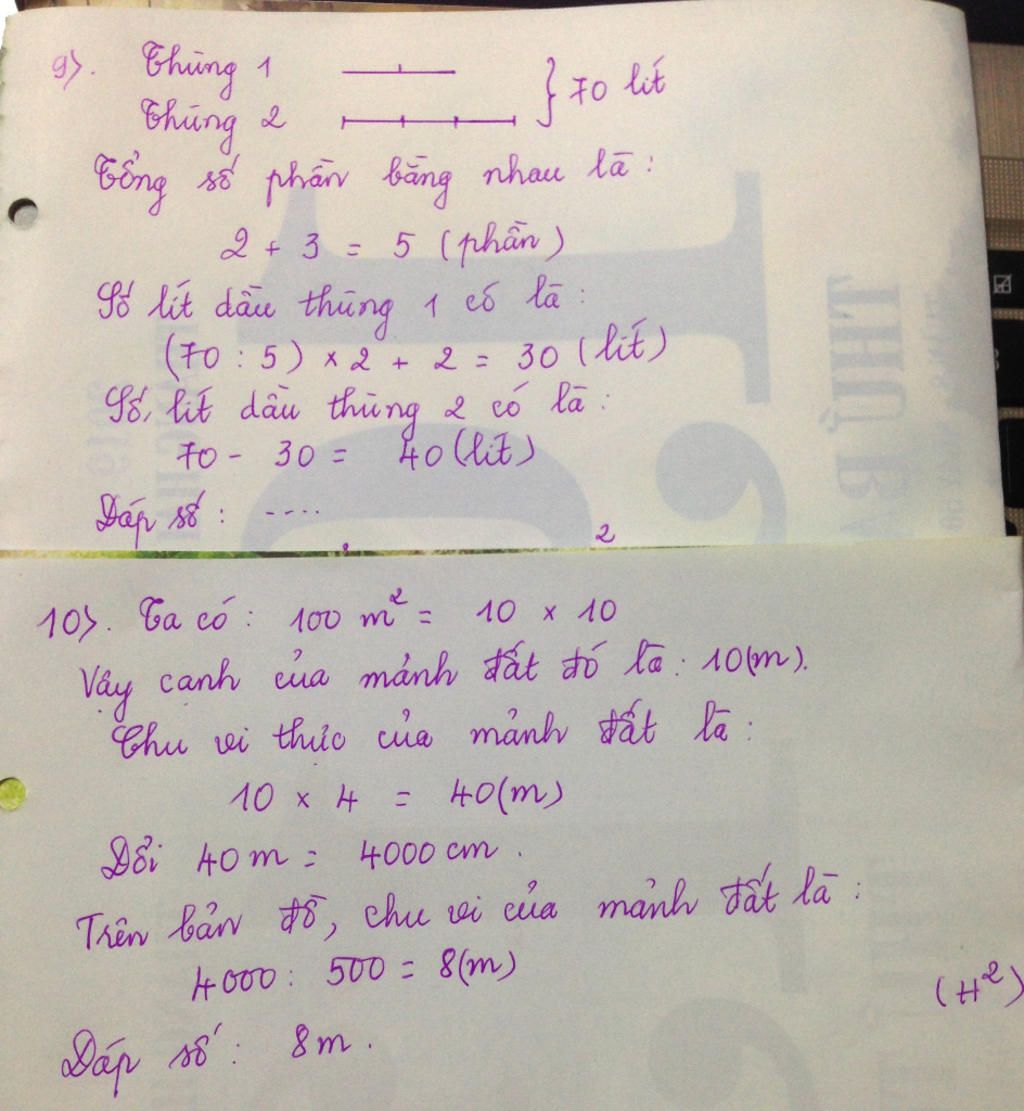 9). Thùng 1
Thùng 2 } 70 lít
Tổng số phần bằng nhau là:
2 + 3 = 5 (phần)
Số lít dầu thùng 1 có là:
(70 : 5) × 2 + 2 = 30 (lít)
Số lít dầu thùng 2 có là:
70 - 30 = 40 (lít)
Đáp số: ....
2
10). Ta có: 100 m² = 10 × 10
Vậy cạnh của mảnh đất đó là: 10(m).
Chu vi thực của mảnh đất là:
10 × 4 = 40(m)
Đổi 40 m = 4000 cm.
Trên bản đồ, chu vi của mảnh đất là:
4000 : 500 = 8(m)
(H²)
Đáp số: 8m.